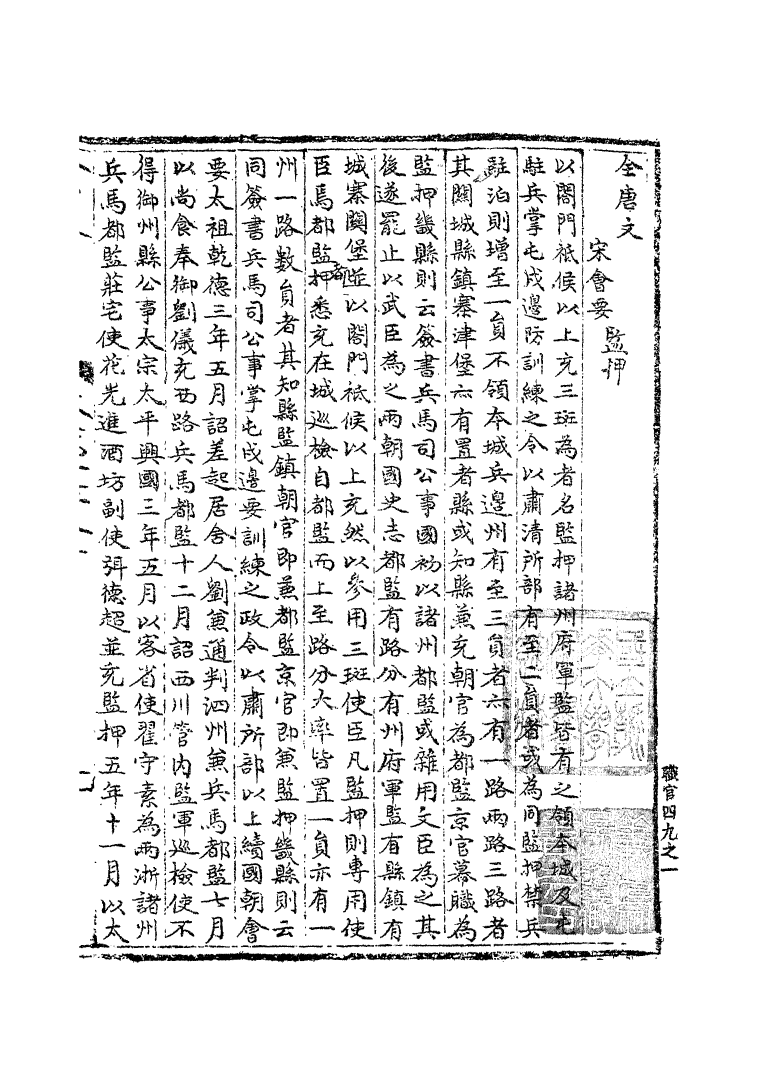 全唐文
宋會要
監押
以閤門祗候以上充三班為者名監押諸州府軍監皆有之領本城及屯
駐兵掌屯戍邊防訓練之令以肅清所部有至二員者或為同監押禁兵
駐泊則增至一員不領本城兵邊州有至三員者六有一路兩路三路者
其關城縣鎮寨津堡六有置者縣或知縣兼充朝官為都監京官幕職為
監押畿縣則云簽書兵馬司公事國初以諸州都監或雜用文臣為之其
後遂罷止以武臣為之兩朝國史志都監有路分有州府軍監有縣鎮有
城寨關堡並以閤門祗候以上充然以參用三班使臣凡監押則專用使
臣馬都監押悉充在城巡檢自都監而上至路分大率皆置一員亦有一
州一路數員者其知縣監鎮朝官即兼都監京官即兼監押畿縣則云
同簽書兵馬司公事掌屯戍邊要訓練之政令以肅所部以上續國朝會
要太祖乾德三年五月詔差起居舍人劉兼通判泗州兼兵馬都監七月
以尚食奉御劉儀充西路兵馬都監十二月詔西川管內監軍巡檢使不
得御州縣公事太宗太平興國三年五月以客省使翟守素為兩浙諸州
兵馬都監莊宅使花光進酒坊副使弭德超並充監押五年十一月以太
職官四九之一